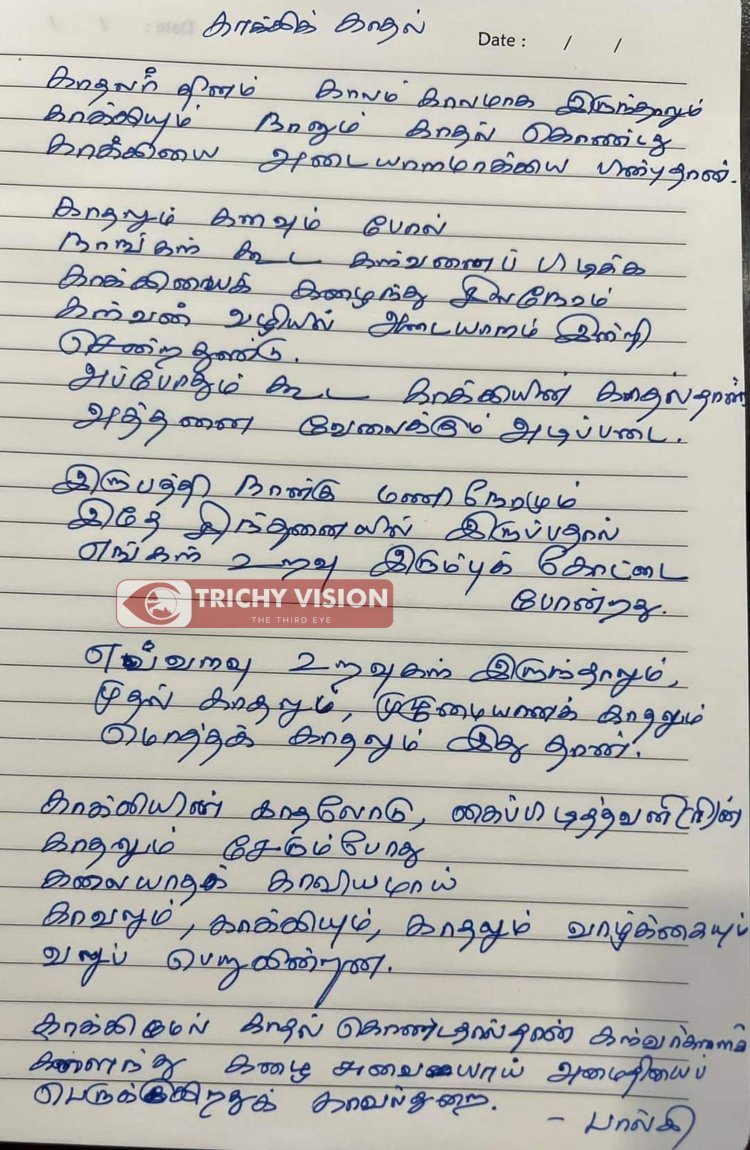 காக்கிக் காதல்
Date : / /
காதலர் தினம் காலம் காலமாக இருந்தாலும்
காக்கியும் நானும் காதல் கொண்டது
காக்கியை அடையாளமாக்கிய பின்புதான்.
காதலும் களவும் போல்
நாங்கள் கூட கள்வனைப் பிடிக்க
காக்கியைக் களைந்து சிலநேரம்
கள்வன் வழியில் அடையாளம் இன்றி
சென்றதுண்டு.
அப்போதும் கூட காக்கியின் காதல்தான்
அத்தனை வேலைக்கும் அடிப்படை.
இருபத்தி நான்கு மணிநேரமும்
இதே சிந்தனையில் இருப்பதால்
எங்கள் உறவு இரும்புக் கோட்டை
போன்றது.
TRICHY VISION
THE THIRD EYE
எவ்வளவு உறவுகள் இருந்தாலும்,
முதல் காதலும், முழுமையானக் காதலும்
மொத்தக் காதலும் இது தான்.
காக்கியின் காதலோடு, கைப்பிடித்தவளி(ரி)ன்
காதலும் சேரும்போது
கலையாதக் காவியமாய்
காவலும், காக்கியும், காதலும் வாழ்க்கையும்
வலுப் பெறுகின்றன.
காக்கிமேல் காதல் கொண்டதால்தான்
களைந்து களை அமைதியைப்
பெருக்குகிறதுக் காவல்துறை.
- பால்கி